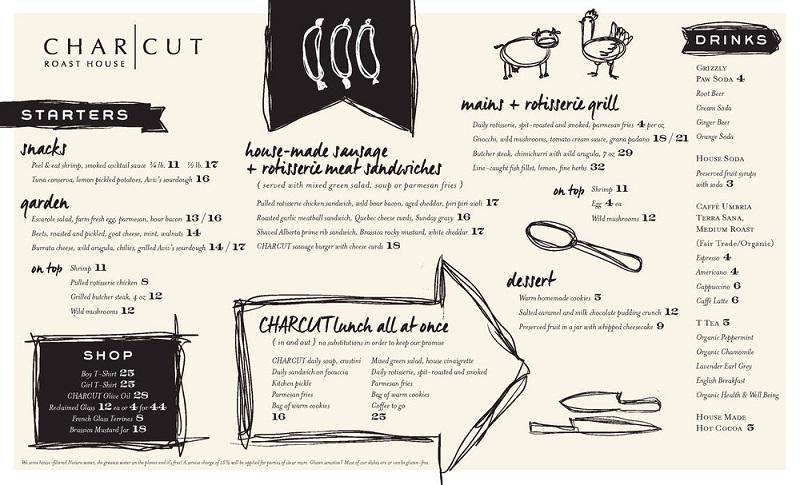 CHAR|CUT
ROAST HOUSE
STARTERS
snacks
Peel & eat shrimp, smoked cocktail sauce ¼ lb. 11 ½ lb. 17
Tuna conserva, lemon pickled potatoes, Aviv's sourdough 16
garden
Escarole salad, farm fresh egg, parmesan, boar bacon 13 / 16
Beets, roasted and pickled, goat cheese, mint, walnuts 14
Burrata cheese, wild arugula, chilies, grilled Aviv's sourdough 14 / 17
on top
Shrimp 11
Pulled rotisserie chicken 8
Grilled butcher steak, 4 oz 12
Wild mushrooms 12
SHOP
Boy T-Shirt 25
Girl T-Shirt 25
CHARCUT Olive Oil 28
Reclaimed Glass 12 ea or 4 for 44
French Glass Terrines 8
Brassica Mustard Jar 18
house-made sausage
+ rotisserie meat sandwiches
( served with mixed green salad, soup or parmesan fries )
Pulled rotisserie chicken sandwich, wild boar bacon, aged cheddar, piri piri aioli 17
Roasted garlic meatball sandwich, Quebec cheese curds, Sunday gravy 16
Shaved Alberta prime rib sandwich, Brassica rocky mustard, white cheddar 17
CHARCUT sausage burger with cheese curds 18
CHARCUT lunch all at once
( in and out ) no substitutions in order to keep our promise
CHARCUT daily soup, crostini
Daily sandwich on focaccia
Kitchen pickle
Parmesan fries
Bag of warm cookies
16
Mixed green salad, house vinaigrette
Daily rotisserie, spit-roasted and smoked
Parmesan fries
Bag of warm cookies
Coffee to go
25
mains + rotisserie grill
Daily rotisserie, spit-roasted and smoked, parmesan fries 4 per oz
Gnocchi, wild mushrooms, tomato cream, grana padano 18 / 21
Butcher steak, chimichurri with wild arugula, 7 oz 29
Line-caught fish fillet, lemon, fine herbs 32
on top
Shrimp 11
Egg 4 ea
Wild mushrooms 12
dessert
Warm homemade cookies 5
Salted caramel and milk chocolate pudding crunch 12
Preserved fruit in a jar with whipped cheesecake 9
DRINKS
GRIZZLY
PAW SODA 4
Root Beer
Cream Soda
Ginger Beer
Orange Soda
HOUSE SODA
Preserved fruit syrups
with soda 3
CAFFÈ UMBRIA
TERRA SANA,
MEDIUM ROAST
(Fair Trade/Organic)
Espresso 4
Americano 4
Cappuccino 6
Caffè Latte 6
T TEA 5
Organic Peppermint
Organic Chamomile
Lavender Earl Grey
English Breakfast
Organic Health & Well Being
HOUSE MADE
HOT COCOA 5
We serve house-filtered Natura water, the greatest water on the planet and it's free! A service charge of 18% will be applied for parties of six or more. Gluten sensitive? Most of our dishes are or can be gluten-free.